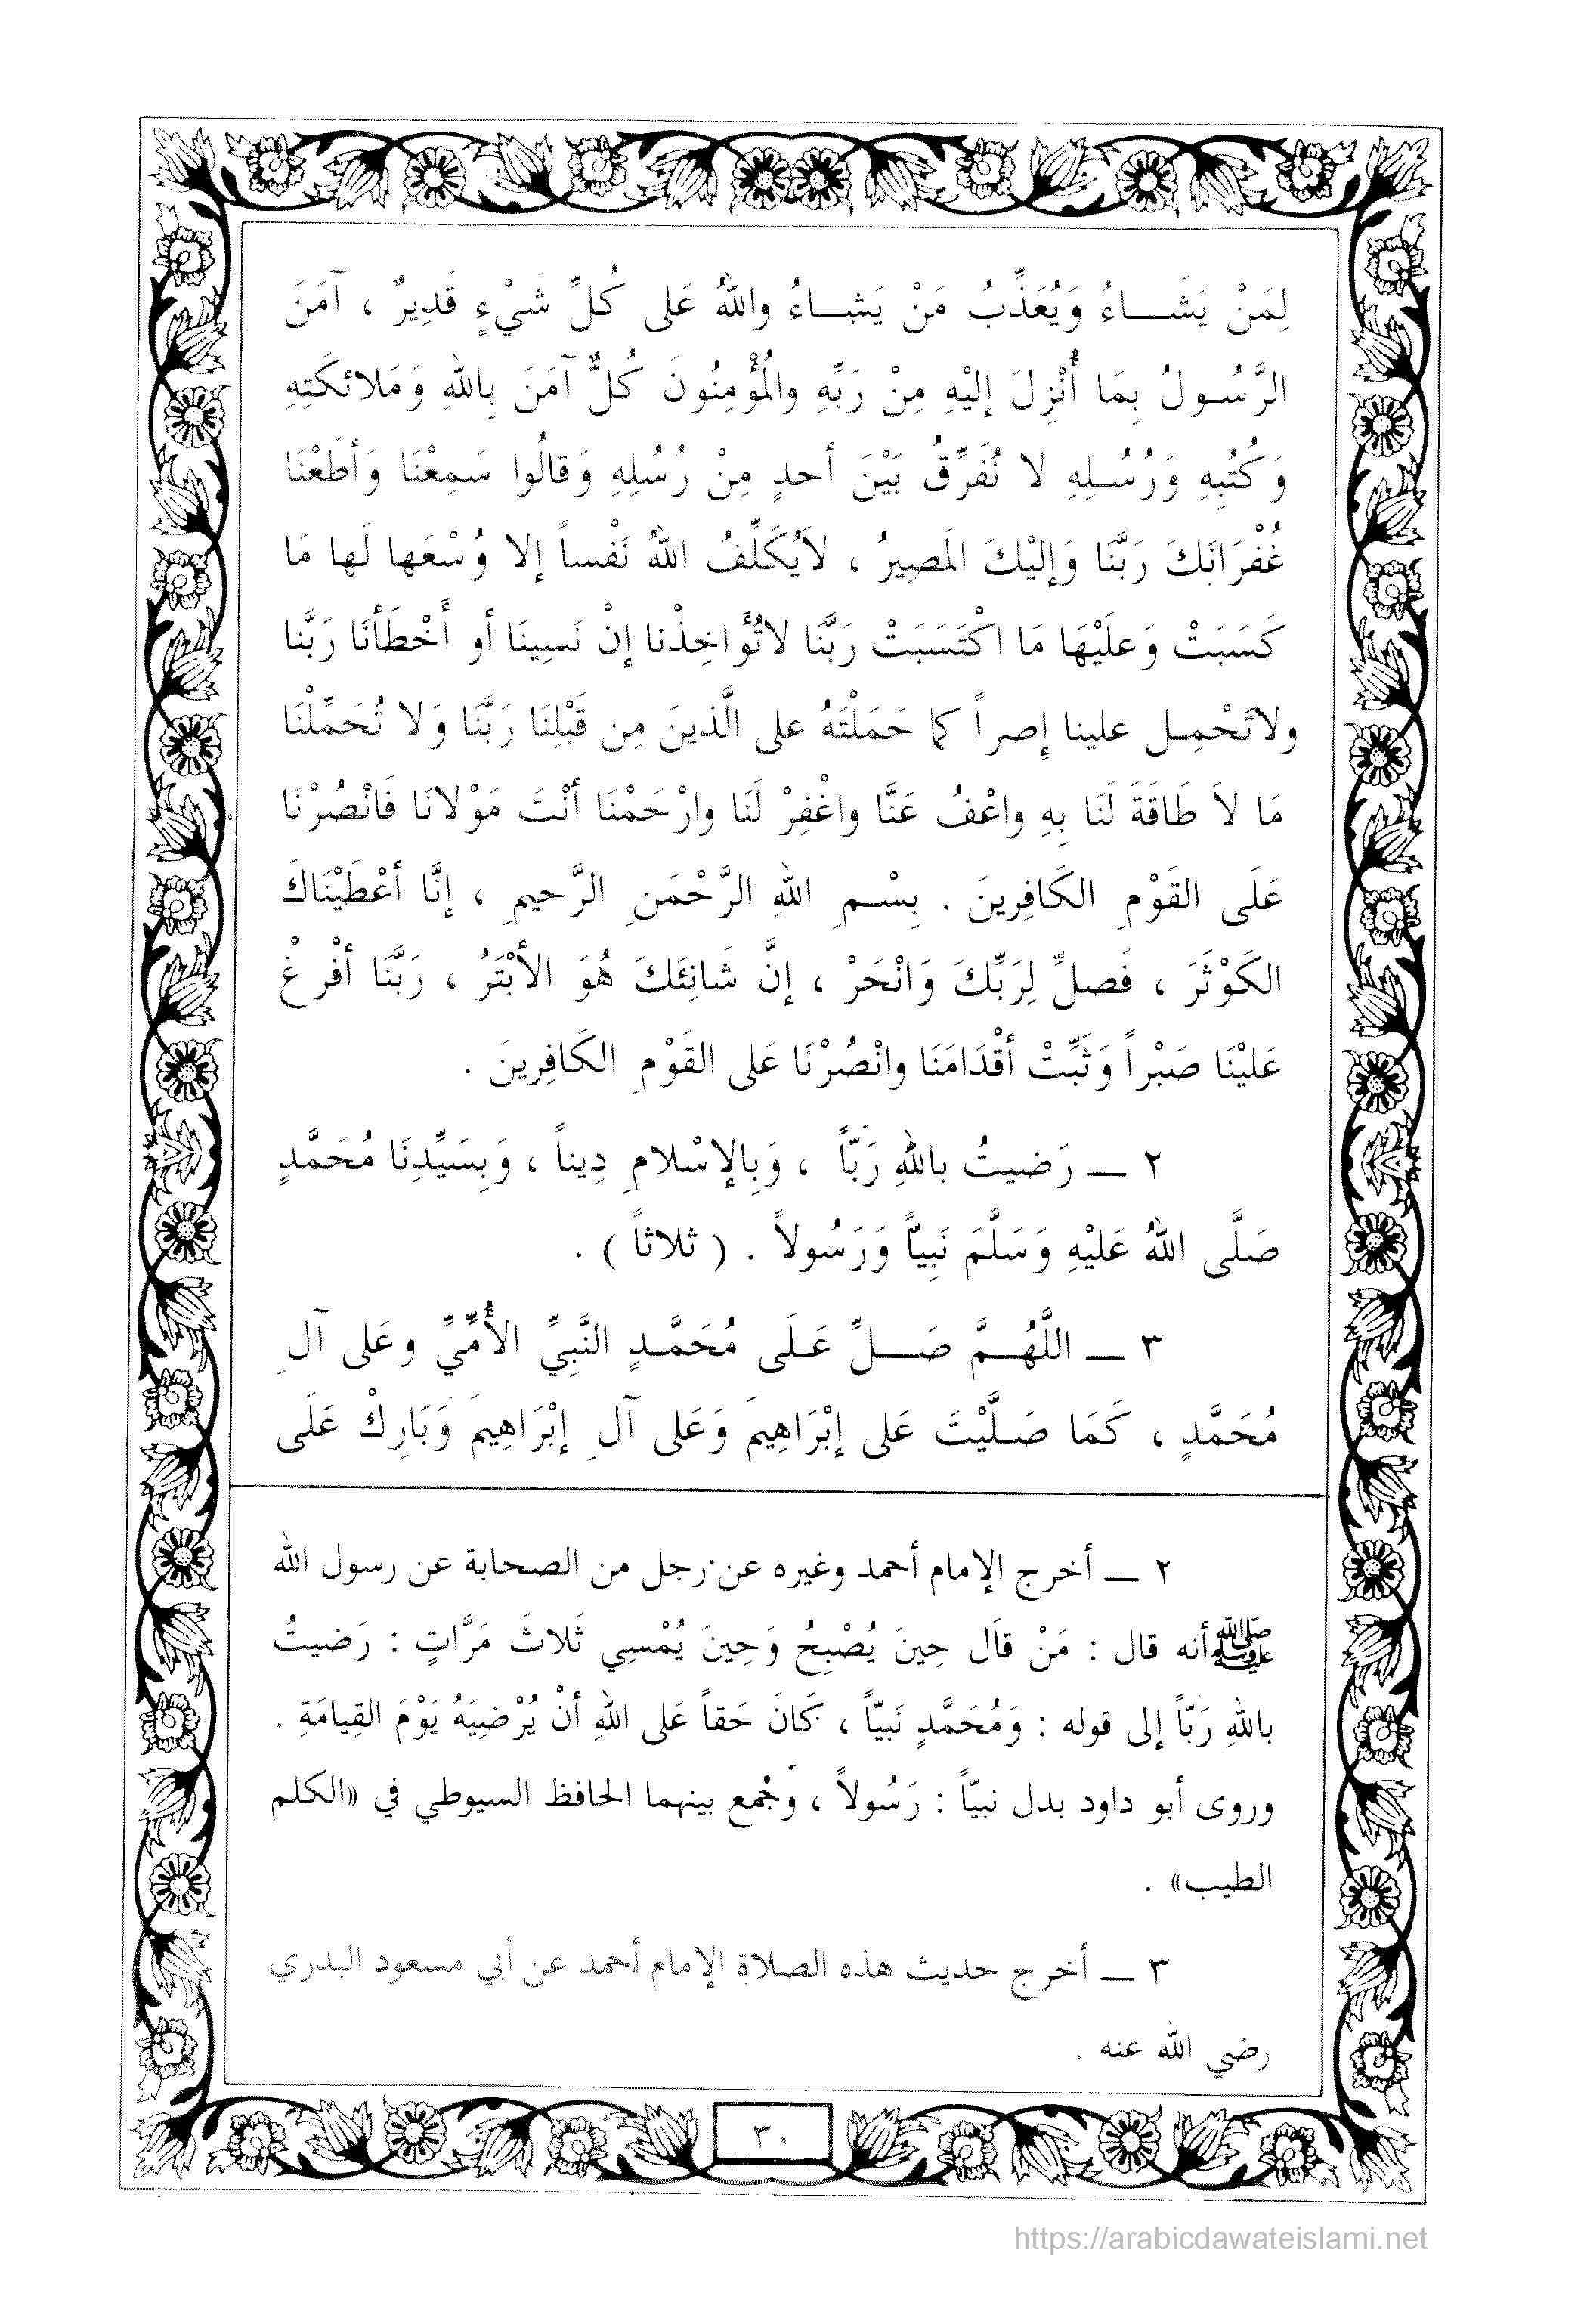 لِمَنْ يَشَـــاءُ وَيُعَذِّبُ مَنْ يَشَـــاءُ واللهُ عَلى كُلِّ شَيْءٍ قَدِيرٌ ، آمَنَ
الرَّسُـولُ بِمَا أُنْزِلَ إليْهِ مِنْ رَبِّهِ والْمُؤْمِنُونَ كُلٌّ آمَنَ بِاللهِ وَمَلائكَتِهِ
وَكُتُبِهِ وَرُسُـلِهِ لا نُفَرِّقُ بَيْنَ أحدٍ مِنْ رُسُلِهِ وَقالُوا سَمِعْنَا وَأطَعْنَا
غُفْرَانَكَ رَبَّنَا وَإليْكَ المَصِيرُ ، لاَيُكَلِّفُ اللهُ نَفْساً إلا وُسْعَها لَها مَا
كَسَبَتْ وَعلَيْهَا مَا اكْتَسَبَتْ رَبَّنَا لاتُؤَاخِذْنا إنْ نَسِينَا أو أَخْطَأنَا رَبَّنا
ولاتَحْمِـل علينا إِصراً كما حَمَلْتَهُ على الَّذينَ مِن قَبْلِنَا رَبَّنَا وَلا تُحَمِّلْنَا
مَا لاَ طَاقَةَ لَنَا بِهِ واعْفُ عَنَّا واغْفِرْ لَنَا وارْحَمْنَا أنْتَ مَوْلانَا فَانْصُرْنَا
عَلَى القَوْمِ الكَافِرِينَ . بِسْـمِ اللهِ الرَّحْمَنِ الرَّحيمِ ، إنَّا أعْطَيْنَاكَ
الكَوْثَرَ ، فَصلِّ لِرَبِّكَ وَانْحَرْ ، إنَّ شَانِئَكَ هُوَ الأبْتَرُ ، رَبَّنَا أفْرِغْ
عَليْنَا صَبْراً وَثَبِّتْ أقْدَامَنَا وانْصُرْنَا عَلى القَوْمِ الكَافِرِينَ .
٢ ــ رَضيتُ باللهِ رَبّاً ، وَبِالإسْلامِ دِيناً ، وَبِسَيِّدِنَا مُحَمَّدٍ
صَلَّى اللهُ عَليْهِ وَسَلَّمَ نَبِيّاً وَرَسُولاً . ( ثلاثاً ) .
٣ ــ اللَّهُـــمَّ صَـــلِّ عَـلَى مُحَمَّـدٍ النَّبِيِّ الأُمِّيِّ وعَلى آلِ
مُحَمَّدٍ ، كَمَا صَـلَّيْتَ عَلى إبْرَاهِيمَ وَعَلى آلِ إبْرَاهِيمَ وَبَارِكْ عَلَى
٢ ــ أخرج الإمام أحمد وغيره عن رجل من الصحابة عن رسول الله
ﷺ أنه قال : مَنْ قَال حِينَ يُصْبِحُ وَحِينَ يُمْسِي ثَلاثَ مَرَّاتٍ : رَضيتُ
باللهِ رَبّاً إلى قوله : وَمُحَمَّدٍ نَبيّاً ، كَانَ حَقاً عَلى اللهِ أنْ يُرْضِيَهُ يَوْمَ القِيامَةِ .
وروى أبو داود بدل نبيّاً : رَسُولاً ، وَجُمع بينهما الحافظ السيوطي في «الكلم
الطيب» .
٣ ــ أخرج حديث هذه الصلاة الإمام أحمد عن أبي مسعود البدري
رضي الله عنه .
٣٠
https://arabicdawateislami.net